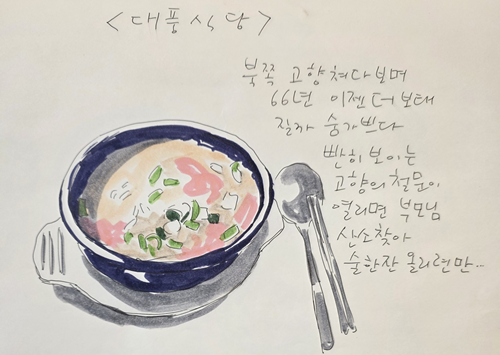 <대풍식당>
북쪽 고향쳐다보며
66년 이젠 더 보태
질까 숨가쁘다
빤히 보이는
고향의 철문이
열리면 부모님
산소찾아
술한잔 올리련만..